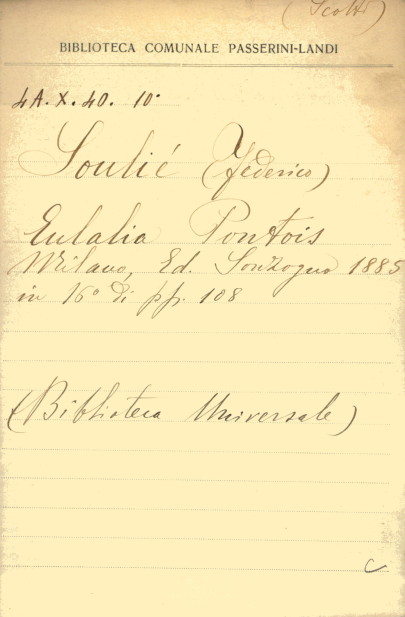 (Scotti)
BIBLIOTECA COMUNALE PASSERINI-LANDI
4A.X.40. 10°
Soulié (Federico)
Eulalia Pontois
Milano, Ed. Sonzogno 1885
in 16° di pp. 108
(Biblioteca Universale)
C